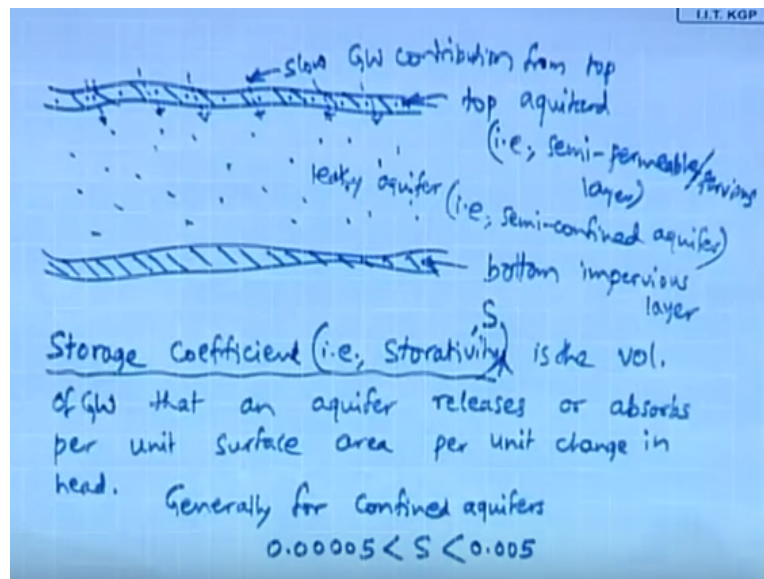 I.I.T. KGP
slow GW contribution from top
top aquitard
(i.e., semi-permeable/pervious
layer)
leaky aquifer (i.e., semi-confined aquifer)
bottom impervious
layer
Storage Coefficient (i.e., Storativity, S) is the vol.
of GW that an aquifer releases or absorbs
per unit surface area per unit change in
head.
Generally for confined aquifers
0.00005 < S < 0.005